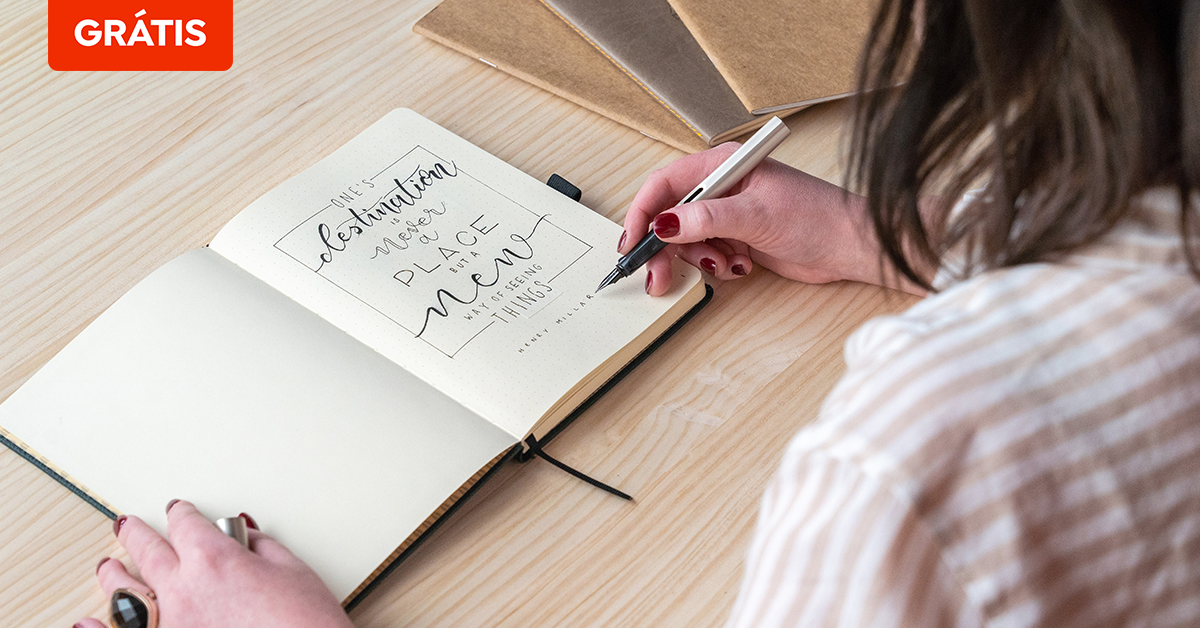 GRÁTIS
ONE'S
destination
is
never
a
PLACE
BUT A
new
WAY OF SEEING
THINGS
HENRY MILLAR